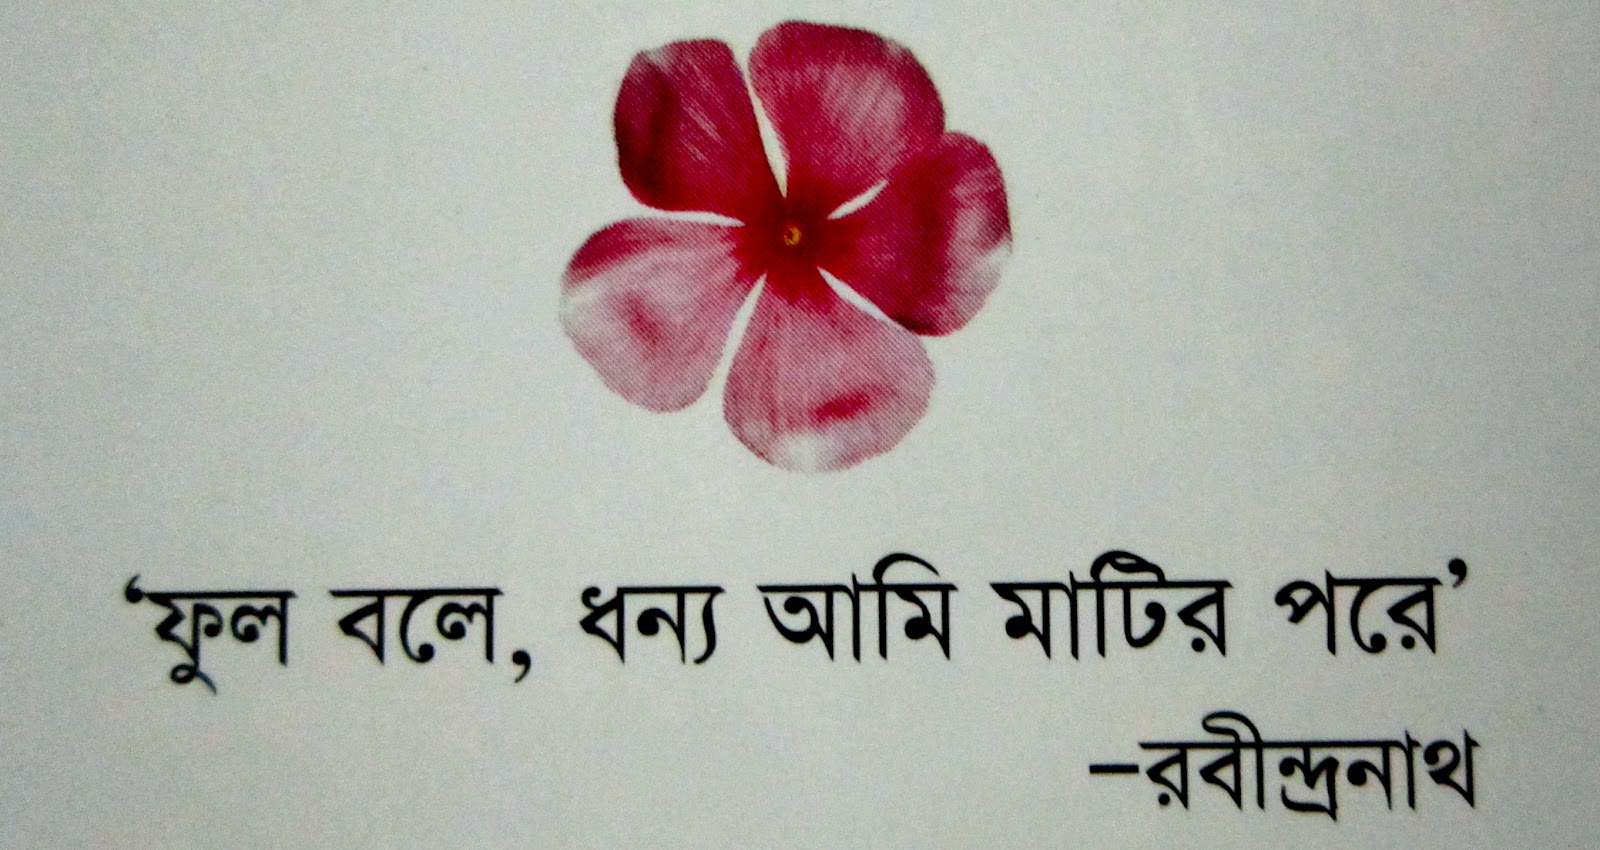 ‘ফুল বলে, ধন্য আমি মাটির পরে’
–রবীন্দ্রনাথ